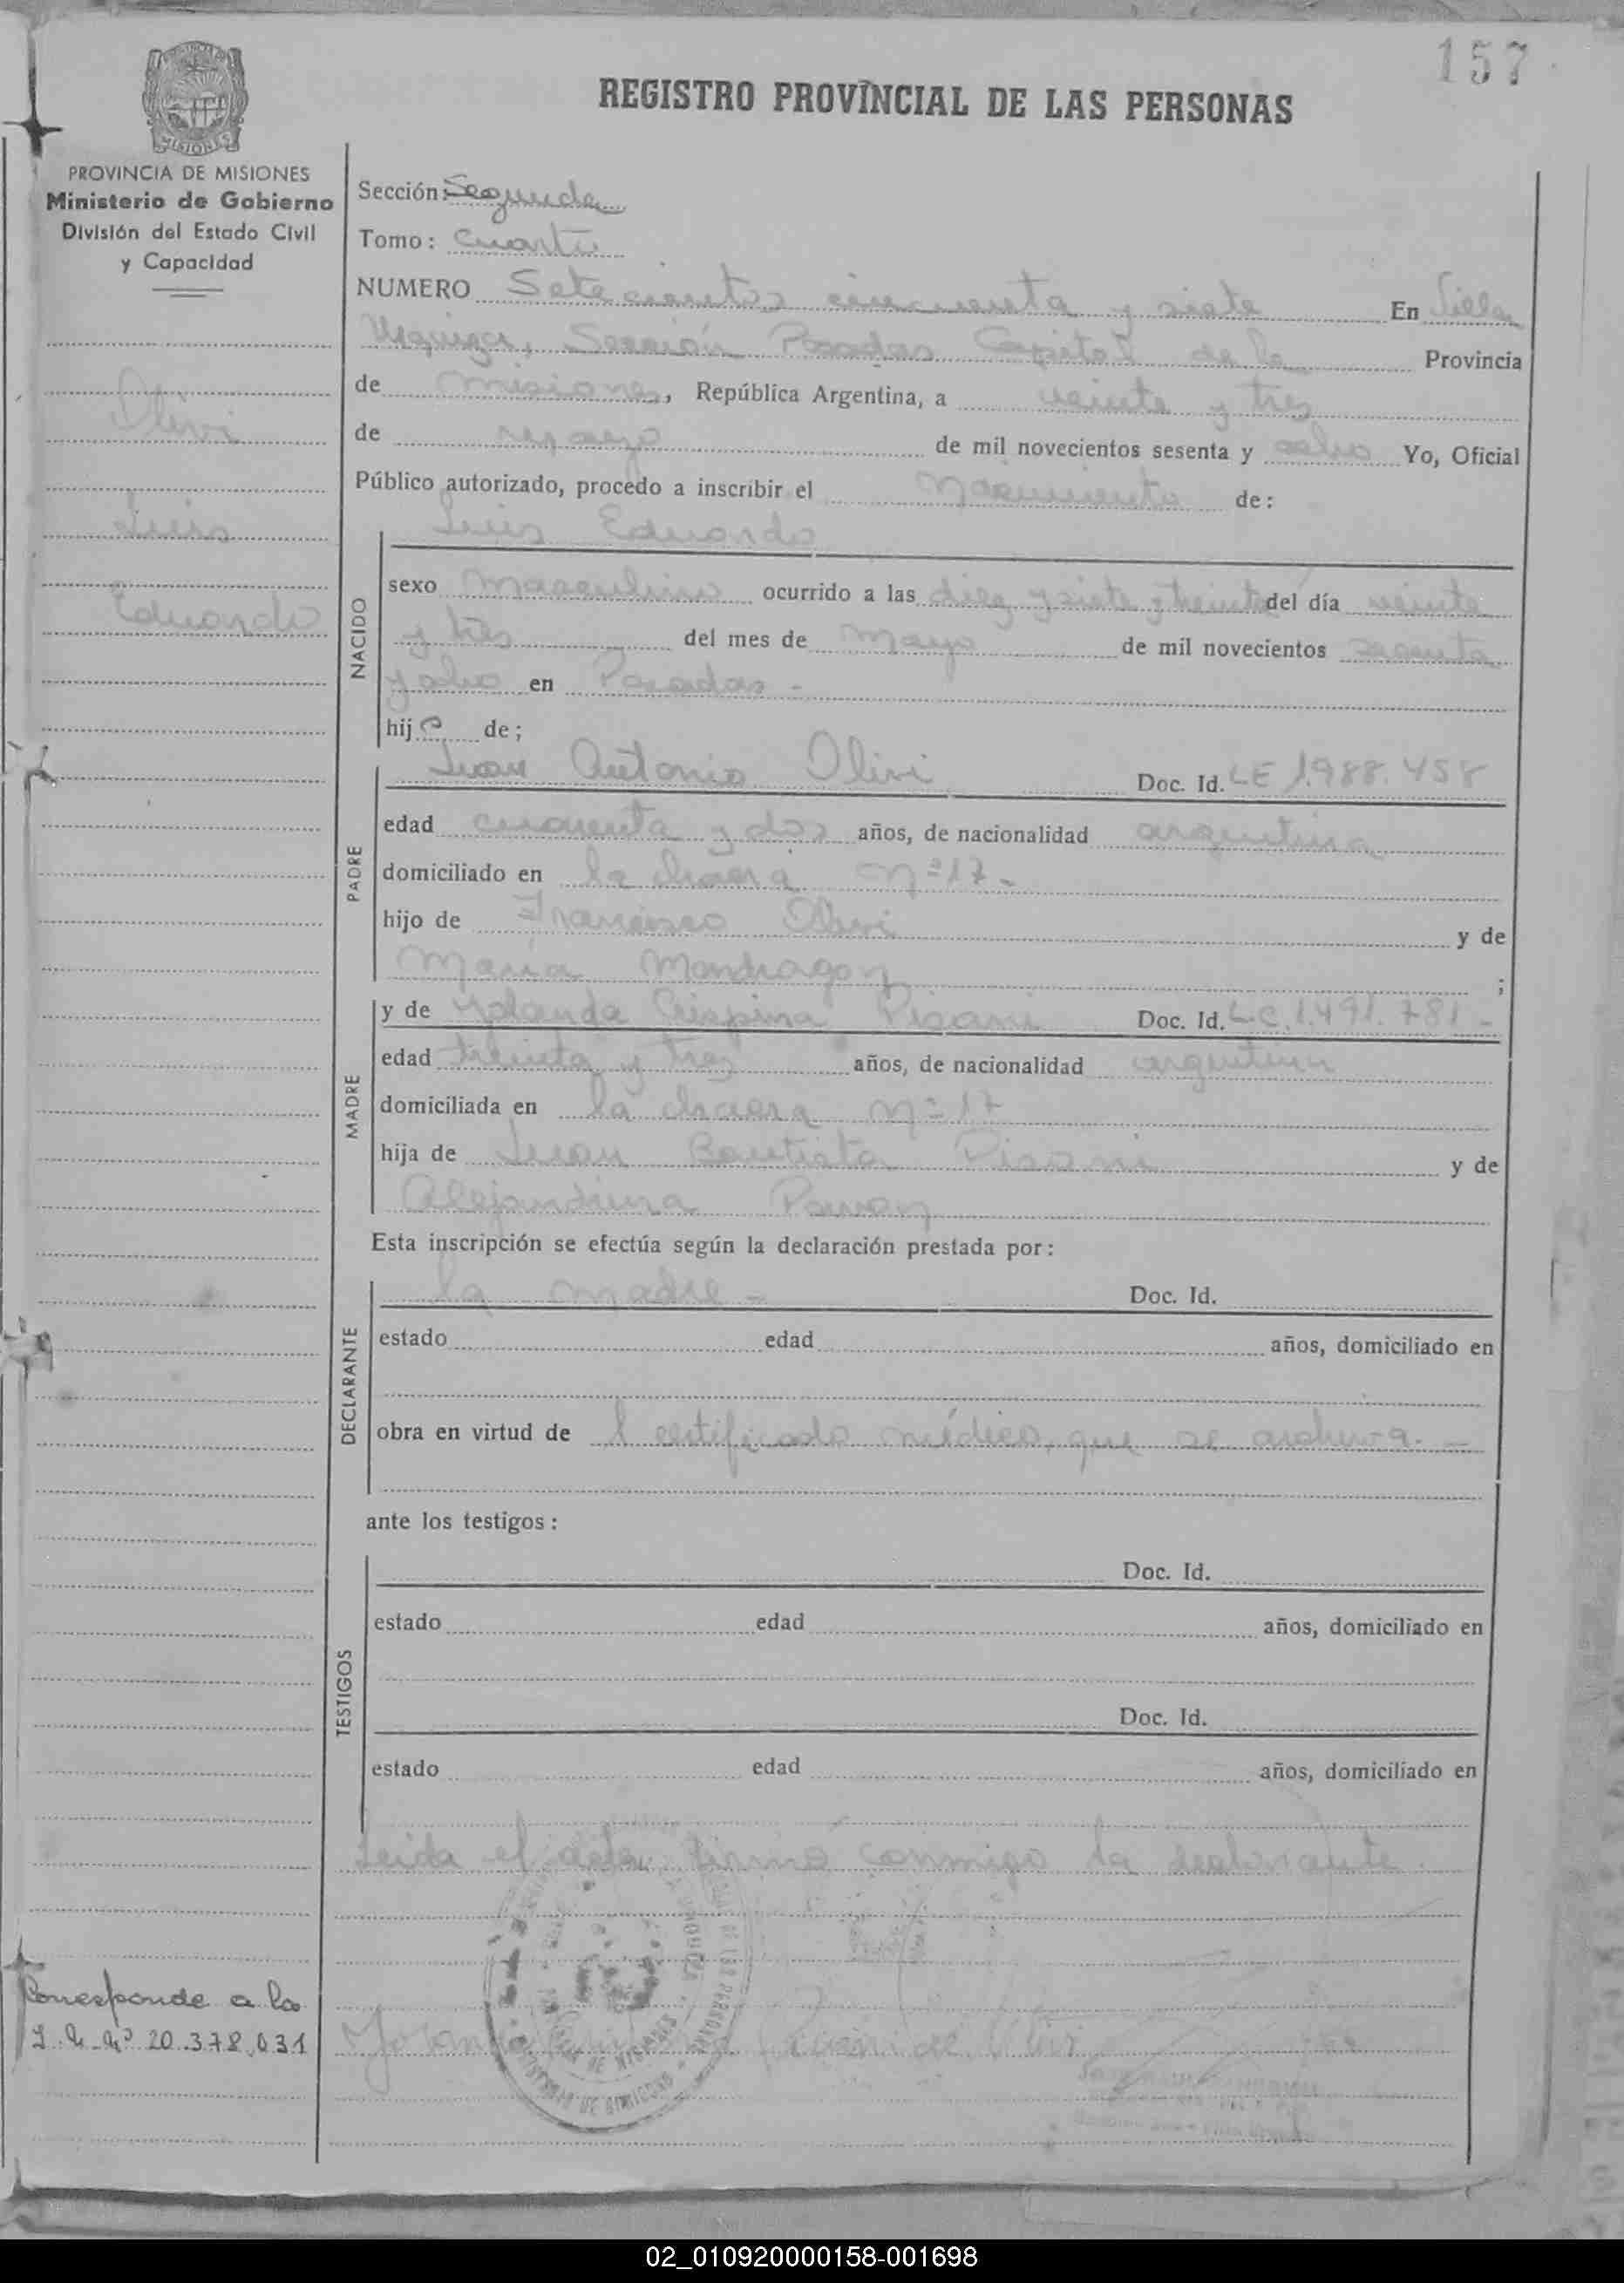 157
REGISTRO PROVINCIAL DE LAS PERSONAS
MISIONES
PROVINCIA DE MISIONES
Ministerio de Gobierno
División del Estado Civil
y Capacidad
Olivi
Luis
Eduardo
Sección: Segunda
Tomo: Cuarto
NUMERO Setecientos cincuenta y siete En Villa
Urquiza, Sección Posadas Capital de la Provincia
de Misiones, República Argentina, a veinte y tres
de de mil novecientos sesenta y ocho Yo, Oficial
Público autorizado, procedo a inscribir el Nacimiento de:
NACIDO
Luis Eduardo
sexo Masculino ocurrido a las diez y siete y treinta del día veinte
y tres del mes de Mayo de mil novecientos sesenta
y ocho en Posadas -
hijo de;
PADRE
Juan Antonio Olivi Doc. Id. LE 1.988.458
edad cincuenta y dos años, de nacionalidad argentina
domiciliado en la chacra Nº 17 -
hijo de Francisco Olivi y de
Maria Mondragon ;
MADRE
y de Yolanda Crispina Pisani Doc. Id. L.C. 1.491.781 -
edad treinta y tres años, de nacionalidad argentina
domiciliada en la chacra Nº 17
hija de Juan Bautista Pisani y de
Alejandrina
Esta inscripción se efectúa según la declaración prestada por:
DECLARANTE
la madre - Doc. Id.
estado edad años, domiciliado en
obra en virtud de l certificado médico, que se archiva. -
ante los testigos:
TESTIGOS
Doc. Id.
estado edad años, domiciliado en
Doc. Id.
estado edad años, domiciliado en
Leida el acta, firma conmigo la declarante.
Corresponde a la
20.378.031
Yolanda Pisani de Olivi
02_010920000158-001698